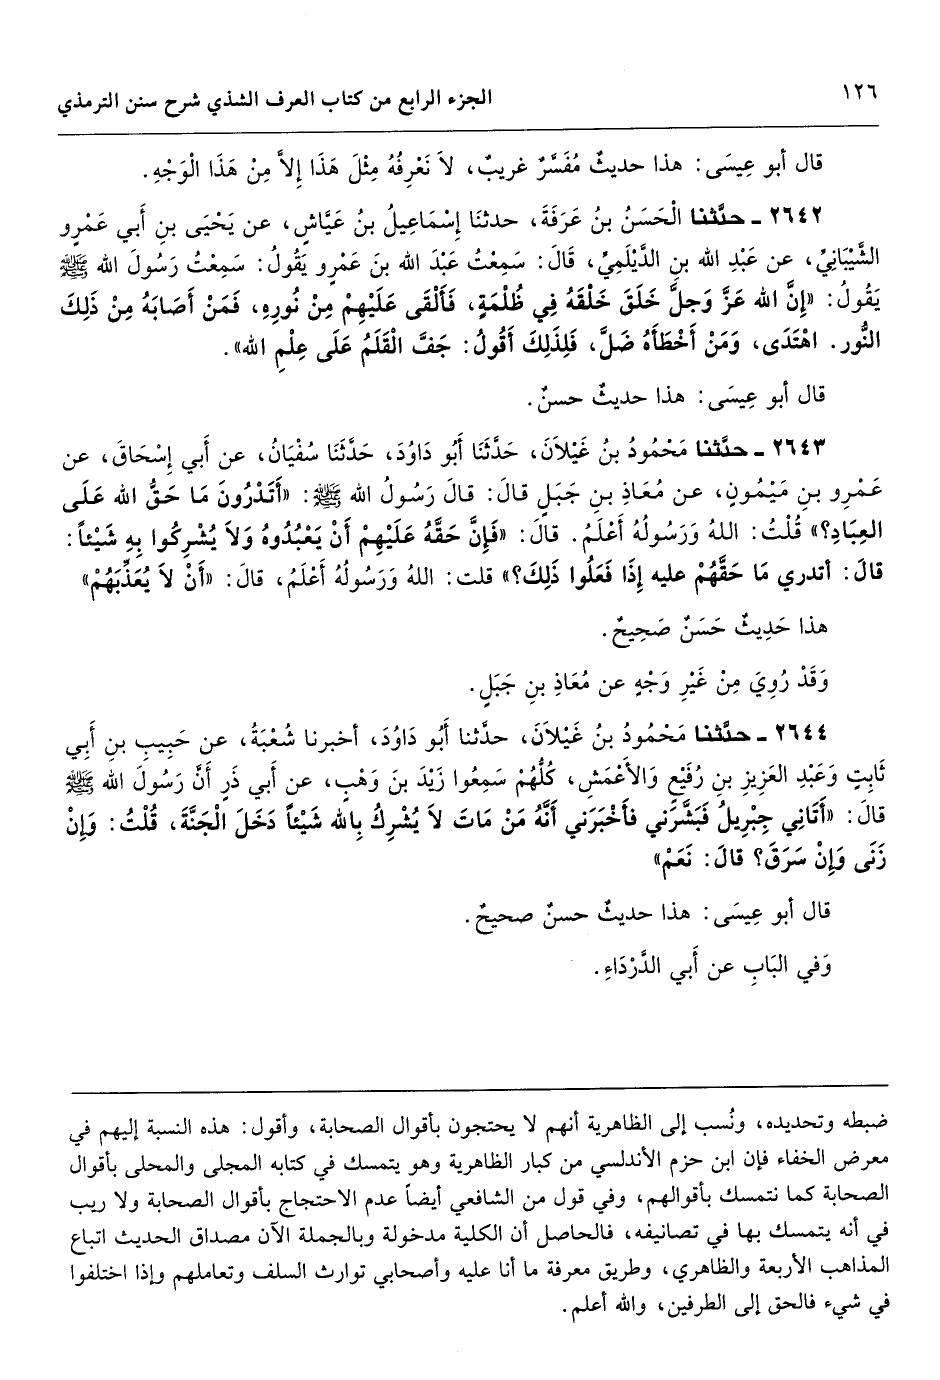 ١٢٦ الجزء الرابع من كتاب العرف الشذي شرح سنن الترمذي
قال أبو عِيسَى: هذا حديثٌ مُفَسَّرٌ غريبٌ، لاَ نَعْرِفُهُ مِثْلَ هَذَا إِلاَّ مِنْ هَذَا الْوَجْهِ.
٢٦٤٢ ـ حدَّثنا الْحَسَنُ بنُ عَرَفَةَ، حدثنَا إِسْمَاعِيلُ بنُ عَيَّاشٍ، عن يَحْيَى بنِ أبي عَمْرٍو
الشَّيْبَانِيِّ، عن عَبْدِ الله بنِ الدَّيْلَمِيِّ، قَالَ: سَمِعْتُ عَبْدَ الله بنَ عَمْرٍو يَقُولُ: سَمِعْتُ رَسُولَ الله ﷺ
يَقُولُ: «إِنَّ الله عَزَّ وَجلَّ خَلَقَ خَلْقَهُ فِي ظُلْمَةٍ، فَأَلْقَى عَلَيْهِمْ مِنْ نُورِهِ، فَمَنْ أَصَابَهُ مِنْ ذَلِكَ
النُّور. اهْتَدَى، وَمَنْ أَخْطَأَهُ ضَلَّ، فَلِذَلِكَ أَقُولُ: جَفَّ الْقَلَمُ عَلَى عِلْمِ الله».
قال أبو عِيسَى: هذا حديثٌ حسنٌ.
٢٦٤٣ ـ حدَّثنا مَحْمُودُ بنُ غَيْلاَنَ، حَدَّثَنَا أَبُو دَاوُدَ، حَدَّثَنَا سُفْيَانُ، عن أَبي إِسْحَاقَ، عن
عَمْرِو بنِ مَيْمُونٍ، عن مُعَاذِ بنِ جَبَلٍ قالَ: قالَ رَسُولُ الله ﷺ: «أَتَدْرُونَ مَا حَقُّ الله عَلَى
العِبَادِ؟» قُلْتُ: اللهُ وَرَسُولُهُ أَعْلَمُ. قالَ: «فَإِنَّ حَقَّهُ عَلَيْهِمْ أَنْ يَعْبُدُوهُ وَلاَ يُشْرِكُوا بِهِ شَيْئاً:
قالَ: أتدري مَا حَقَّهُمْ عليه إِذَا فَعَلُوا ذَلِكَ؟» قلت: اللهُ وَرَسُولُهُ أَعْلَمُ، قالَ: «أَنْ لاَ يُعَذِّبَهُمْ»
هذا حَدِيثٌ حَسَنٌ صَحِيحٌ.
وَقَدْ رُوِيَ مِنْ غَيْرِ وَجْهٍ عن مُعَاذِ بنِ جَبَلٍ.
٢٦٤٤ ـ حدَّثنا مَحْمُودُ بنُ غَيْلاَنَ، حدَّثنا أَبُو دَاوُدَ، أخبرنا شُعْبَةُ، عن حَبِيبِ بنِ أَبِي
ثَابِتٍ وَعَبْدِ العَزِيزِ بنِ رُفَيْعٍ وَالأَعْمَشِ، كُلُّهُمْ سَمِعُوا زَيْدَ بنَ وَهْبٍ، عن أَبي ذَرٍ أَنَّ رَسُولَ الله ﷺ
قالَ: «أَتَانِي جِبْرِيلُ فَبَشَّرَنِي فأَخْبَرَنِي أَنَّهُ مَنْ مَاتَ لاَ يُشْرِكُ بِالله شَيْئاً دَخَلَ الْجَنَّةَ، قُلْتُ: وَإِنْ
زَنَى وَإِنْ سَرَقَ؟ قالَ: نَعَمْ»
قال أبو عِيسَى: هذا حديثٌ حسنٌ صحيحٌ.
وَفي البَابِ عن أَبي الدَّرْدَاءِ.
ضبطه وتحديده، ونُسب إلى الظاهرية أنهم لا يحتجون بأقوال الصحابة، وأقول: هذه النسبة إليهم في
معرض الخفاء فإن ابن حزم الأندلسي من كبار الظاهرية وهو يتمسك في كتابه المجلى والمحلى بأقوال
الصحابة كما نتمسك بأقوالهم، وفي قول من الشافعي أيضاً عدم الاحتجاج بأقوال الصحابة ولا ريب
في أنه يتمسك بها في تصانيفه، فالحاصل أن الكلية مدخولة وبالجملة الآن مصداق الحديث اتباع
المذاهب الأربعة والظاهري، وطريق معرفة ما أنا عليه وأصحابي توارث السلف وتعاملهم وإذا اختلفوا
في شيء فالحق إلى الطرفين، والله أعلم.